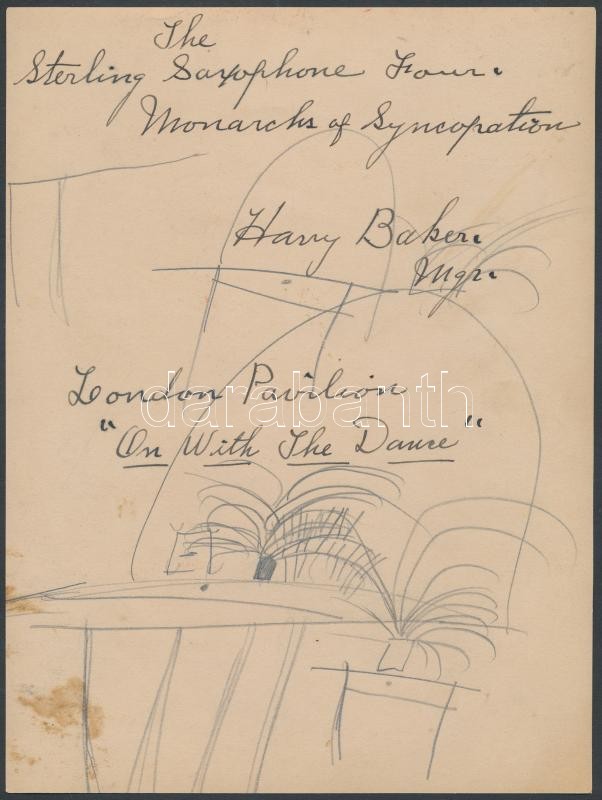 The
Sterling Saxophone Four.
Monarchs of Syncopation
Harry Baker.
Mgr.
London Pavilion
"On With The Dance"
darabanth